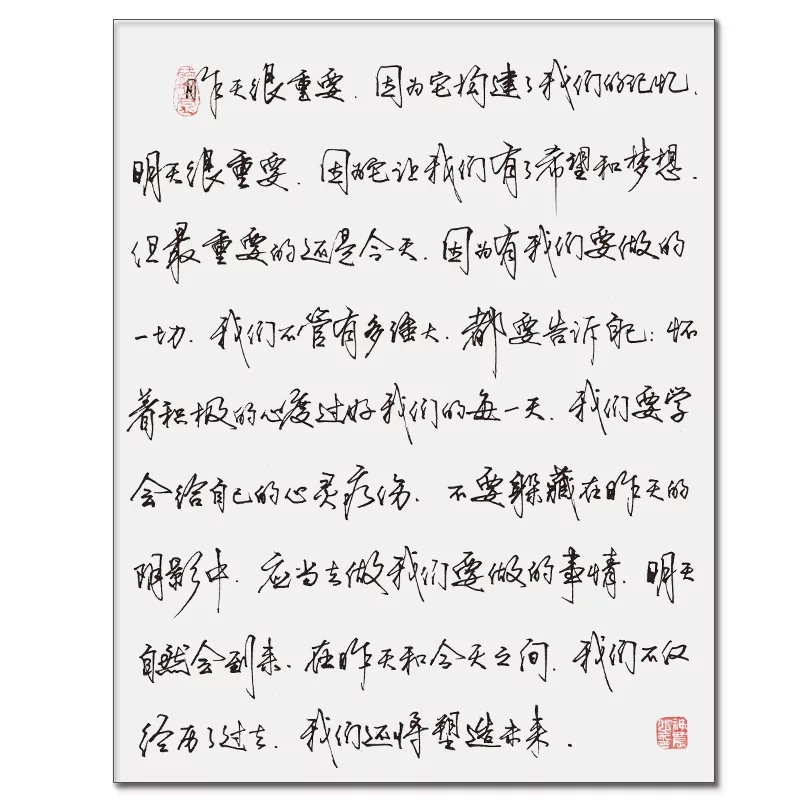 昨天很重要.因为它构建了我们的记忆.
明天很重要.因为它让我们有了希望和梦想.
但最重要的还是今天.因为有我们要做的
一切.我们不管有多强大.都要告诉自己:怀
着积极的心度过好我们的每一天.我们要学
会给自己的心灵疗伤.不要躲藏在昨天的
阴影中.应当去做我们要做的事情.明天
自然会到来.在昨天和今天之间.我们不仅
经历了过去.我们还将塑造未来.